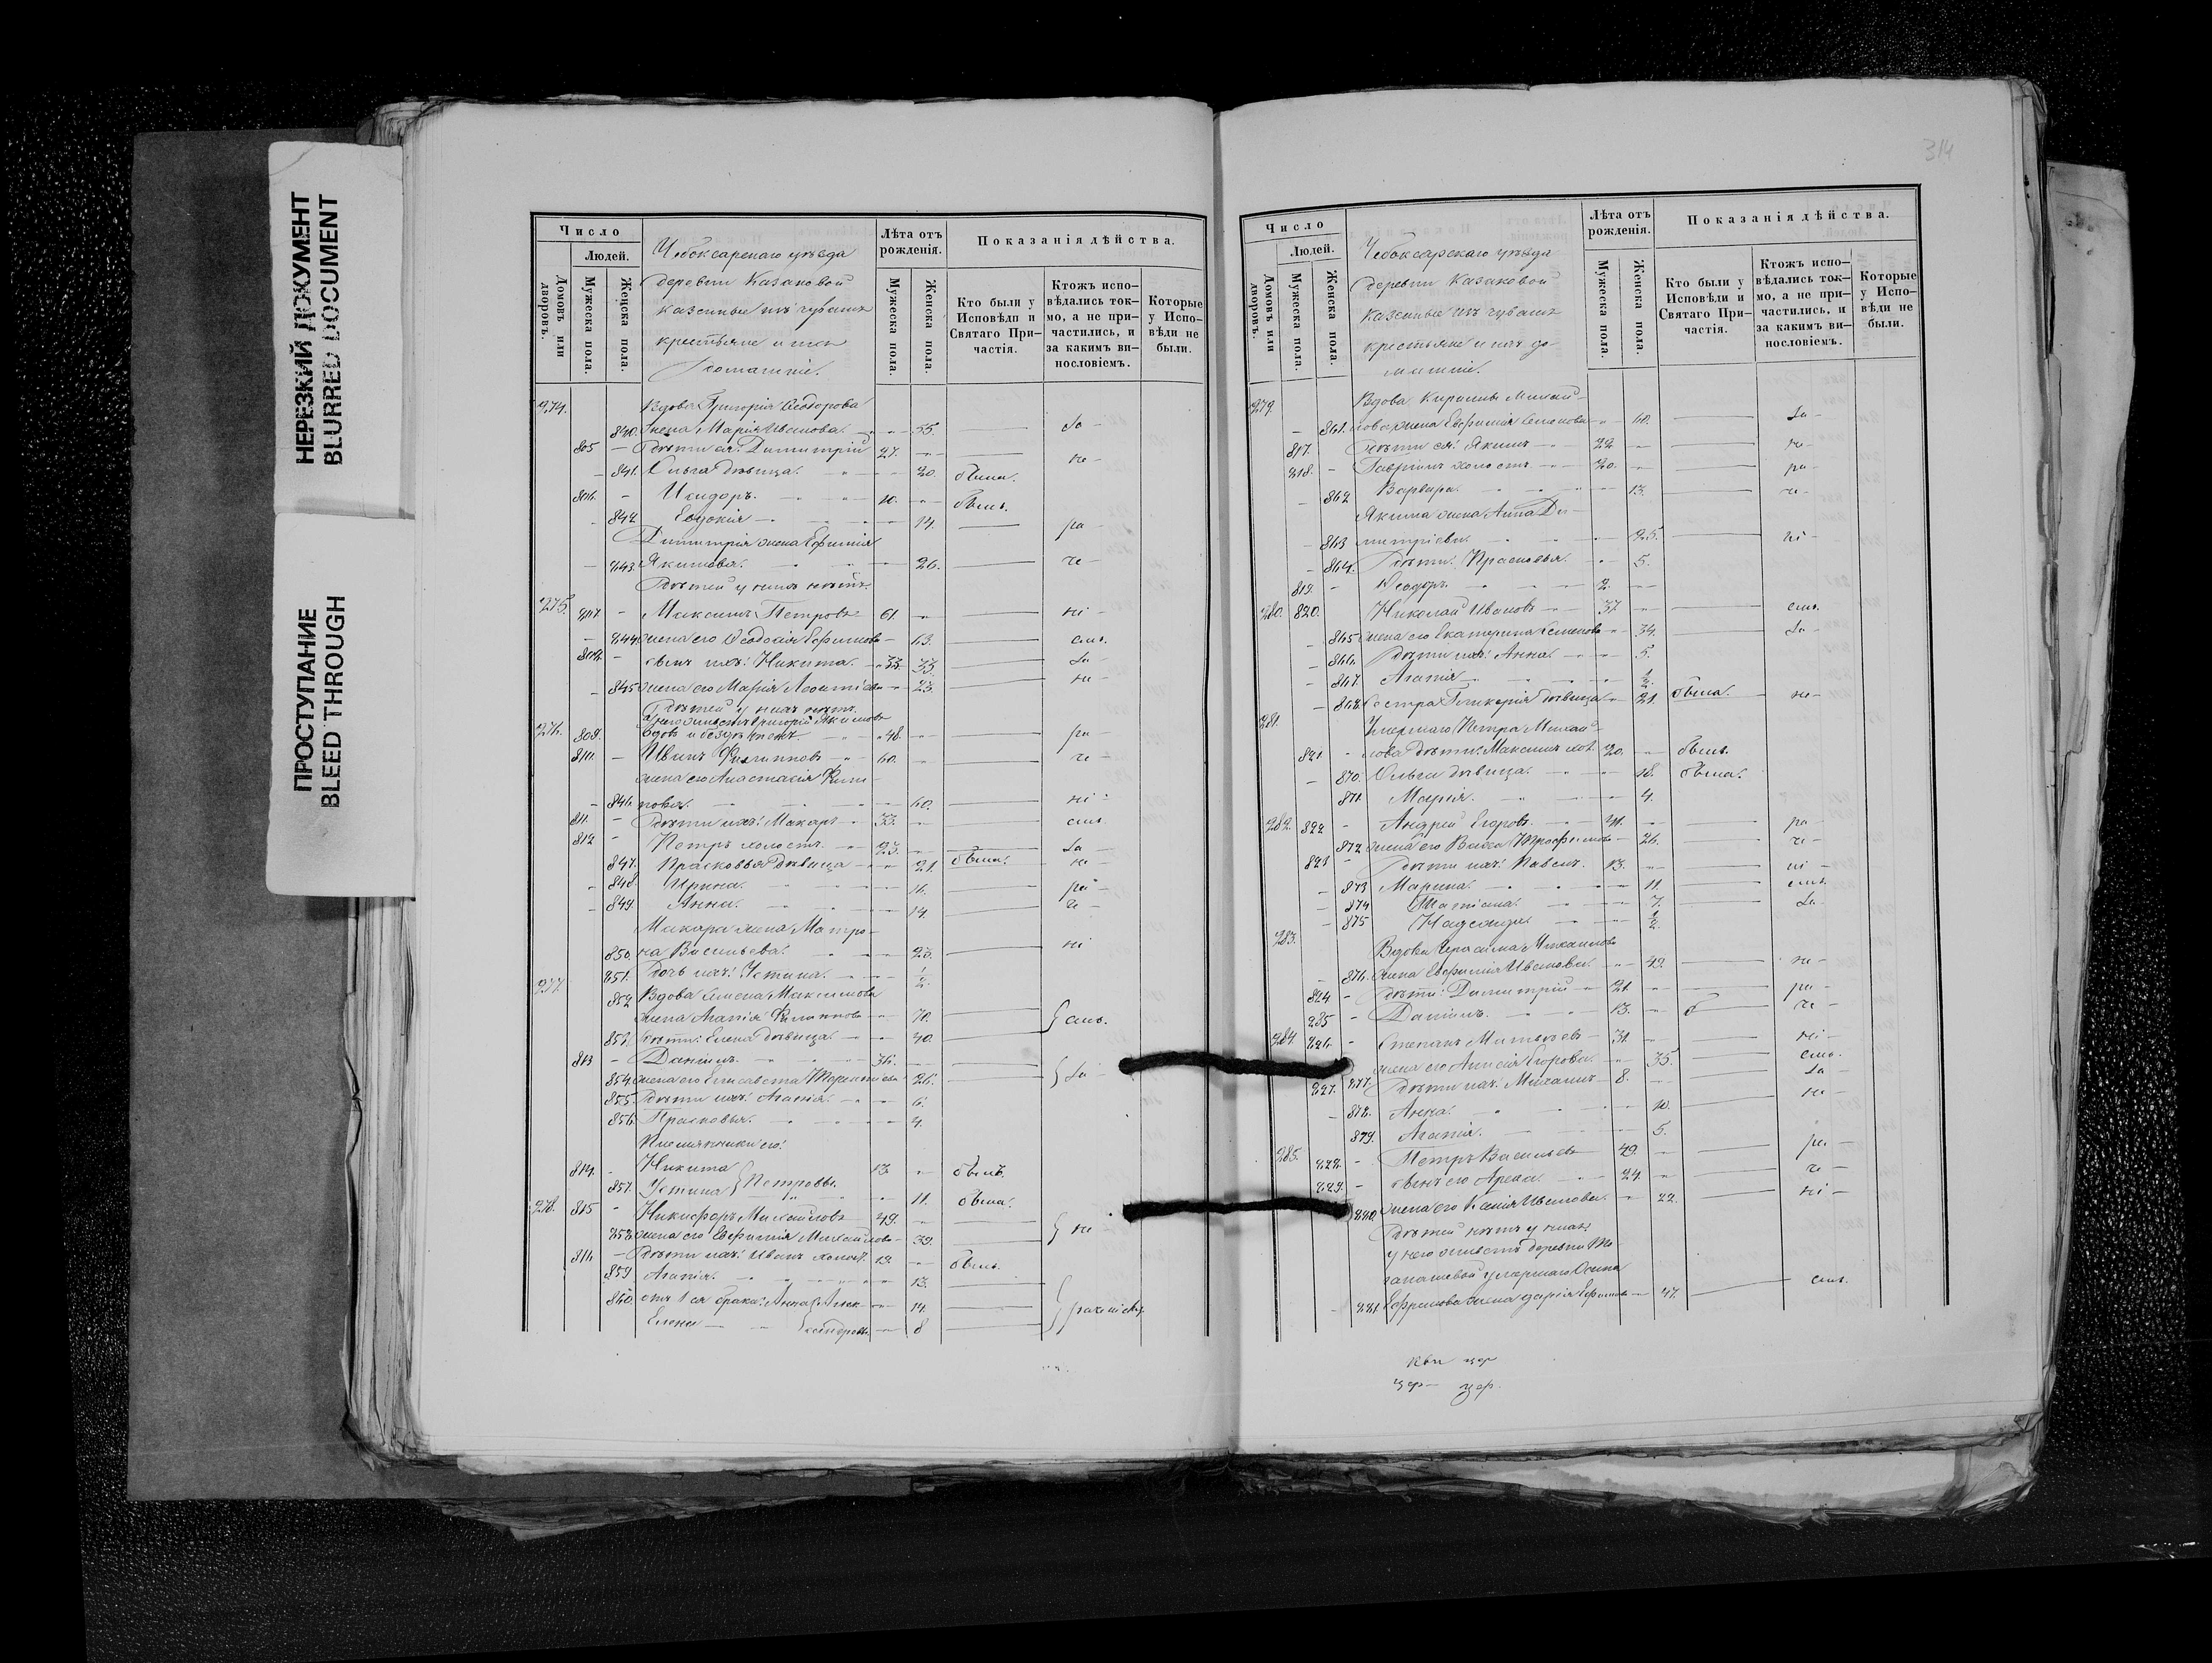 НЕРЕЗКИЙ ДОКУМЕНТ
BLURRED DOCUMENT
ПРОСТУПАНИЕ
BLEED THROUGH
Число
Людей.
Домовъ или дворовъ.
Мужеска пола.
Женска пола.
Чебоксарскаго уѣзда
деревни Казаковой
казенные изъ чувашъ
крестьяне и ихъ
домашніе.
Лѣта отъ рожденія.
Мужеска пола.
Женска пола.
Показанія дѣйства.
Кто были у Исповѣди и Святаго При-частія.
Ктожъ испо-вѣдались ток-мо, а не при-частились, и за какимъ ви-нословіемъ.
Которые у Испо-вѣди не были.
274. Вдова Григорія Ѳеодорова
840. жена Марія Иванова. 55. За
805 - Дѣти ея: Димитрій 27. не
- 841. Ольга дѣвица. 20. была.
806. - Исидоръ. 10. былъ.
- 842 Евдокія 14. ра
Димитрія жена Евфимія
- 843. Якимова. 26. че
Дѣтей у нихъ нѣтъ.
275. 807. - Максимъ Петровъ 61. ні
- 844. жена его Ѳеодосія Ефимова 63. емъ.
808. - сынъ ихъ: Никита. 33. За
- 845 жена его Марія Леонтіева 23. не
Дѣтей у нихъ нѣтъ.
У него живетъ Григорій Якимовъ
276. 809. вдовъ и бездѣтенъ 48. ра
810. - Иванъ Филипповъ 60. че
жена его Анастасія Фили-
- 846. пова. 60. ні
811. - Дѣти ихъ: Макаръ 33. емъ
812 - Петръ холостъ. 23. За
847. Прасковья дѣвица 21. была. не
- 848. Ирина. 16. ра
- 849. Анна. 14. че
Макара жена Матро-
850. на Васильева. 23. ні
851. Дочь ихъ: Устина. 1/2.
277. 852 Вдова Семена Максимова
жена Агапія Филиппова 70. емъ.
853. Дѣти: Елена дѣвица. 40.
813 - Даніилъ. 36.
854. жена его Елисавета Терентіева 26. За
855. Дѣти ихъ: Агапія. 6.
856. Прасковья. 4.
Племянники его:
814. - Никита 13. былъ.
857. Устина Петровы. 11. была.
278. 815 - Никифоръ Михайловъ 49. не
858. жена его Евфимія Михайлова 39.
816 - Дѣти ихъ: Иванъ холост. 19. былъ.
859 Агапія. 13.
860. отъ 1 ея брака: Анна Алек- 14.
Елена ксандровы. 8
314
Число
Людей.
Домовъ или дворовъ.
Мужеска пола.
Женска пола.
Чебоксарскаго уѣзда
деревни Казаковой
казенные изъ чувашъ
крестьяне и ихъ до-
машніе.
Лѣта отъ рожденія.
Мужеска пола.
Женска пола.
Показанія дѣйства.
Кто были у Исповѣди и Святаго При-частія.
Ктожъ испо-вѣдались ток-мо, а не при-частились, и за какимъ ви-нословіемъ.
Которые у Испо-вѣди не были.
279. Вдова Кирилы Михай-
- 861. лова жена Евфимія Семенова 60. За
817. Дѣти ея: Якимъ 22 не
818. - Гавріилъ холостъ 20. ра
- 862 Варвара. 13. че
Якима жена Анна Ди-
- 863 митріева. 25. ні
- 864. Дѣти: Прасковья. 5.
819. - Ѳеодоръ 2.
280. 820. Николай Ивановъ 37 емъ.
- 865 жена его Екатерина Семенова 34. За
- 866. Дѣти ихъ: Анна. 5.
- 867. Агапія 1/2.
- 868. Сестра Гликерія дѣвица 21. была. не
281. Умершаго Петра Михай-
821. - лова дѣти: Максимъ хол. 20. былъ.
- 870. Ольга дѣвица. 18. была.
871. Марія. 4.
282. 822 - Андрей Егоровъ. 41. ра
872 жена его Васса Трофимова 36. че
823 - Дѣти ихъ: Павелъ. 13. ні
- 873 Марина. 11. емъ.
- 874 Татіана. 7. За
- 875 Надежда. 1/2.
283. Вдова Герасима Михайлова
- 876. жена Евфимія Иванова. 49. не
824 - Дѣти: Димитрій 21. ра
825 - Даніилъ. 13. че
284. 826. - Степанъ Матвѣевъ 31. ні
877. жена его Анисія Егорова. 35. емъ.
827. Дѣти ихъ: Михаилъ 8. За
- 878. Анна. 10. не
879. Агапія. 5.
285. 828. - Петръ Васильевъ 49. ра
829. - сынъ его Арефа. 24. че
880. жена его Ксенія Иванова. 22. ні
Дѣтей нѣтъ у нихъ
у него живетъ деревни То-
умершаго Осипа
- 881 Ефимова жена Дарія Ефимова 47. емъ.